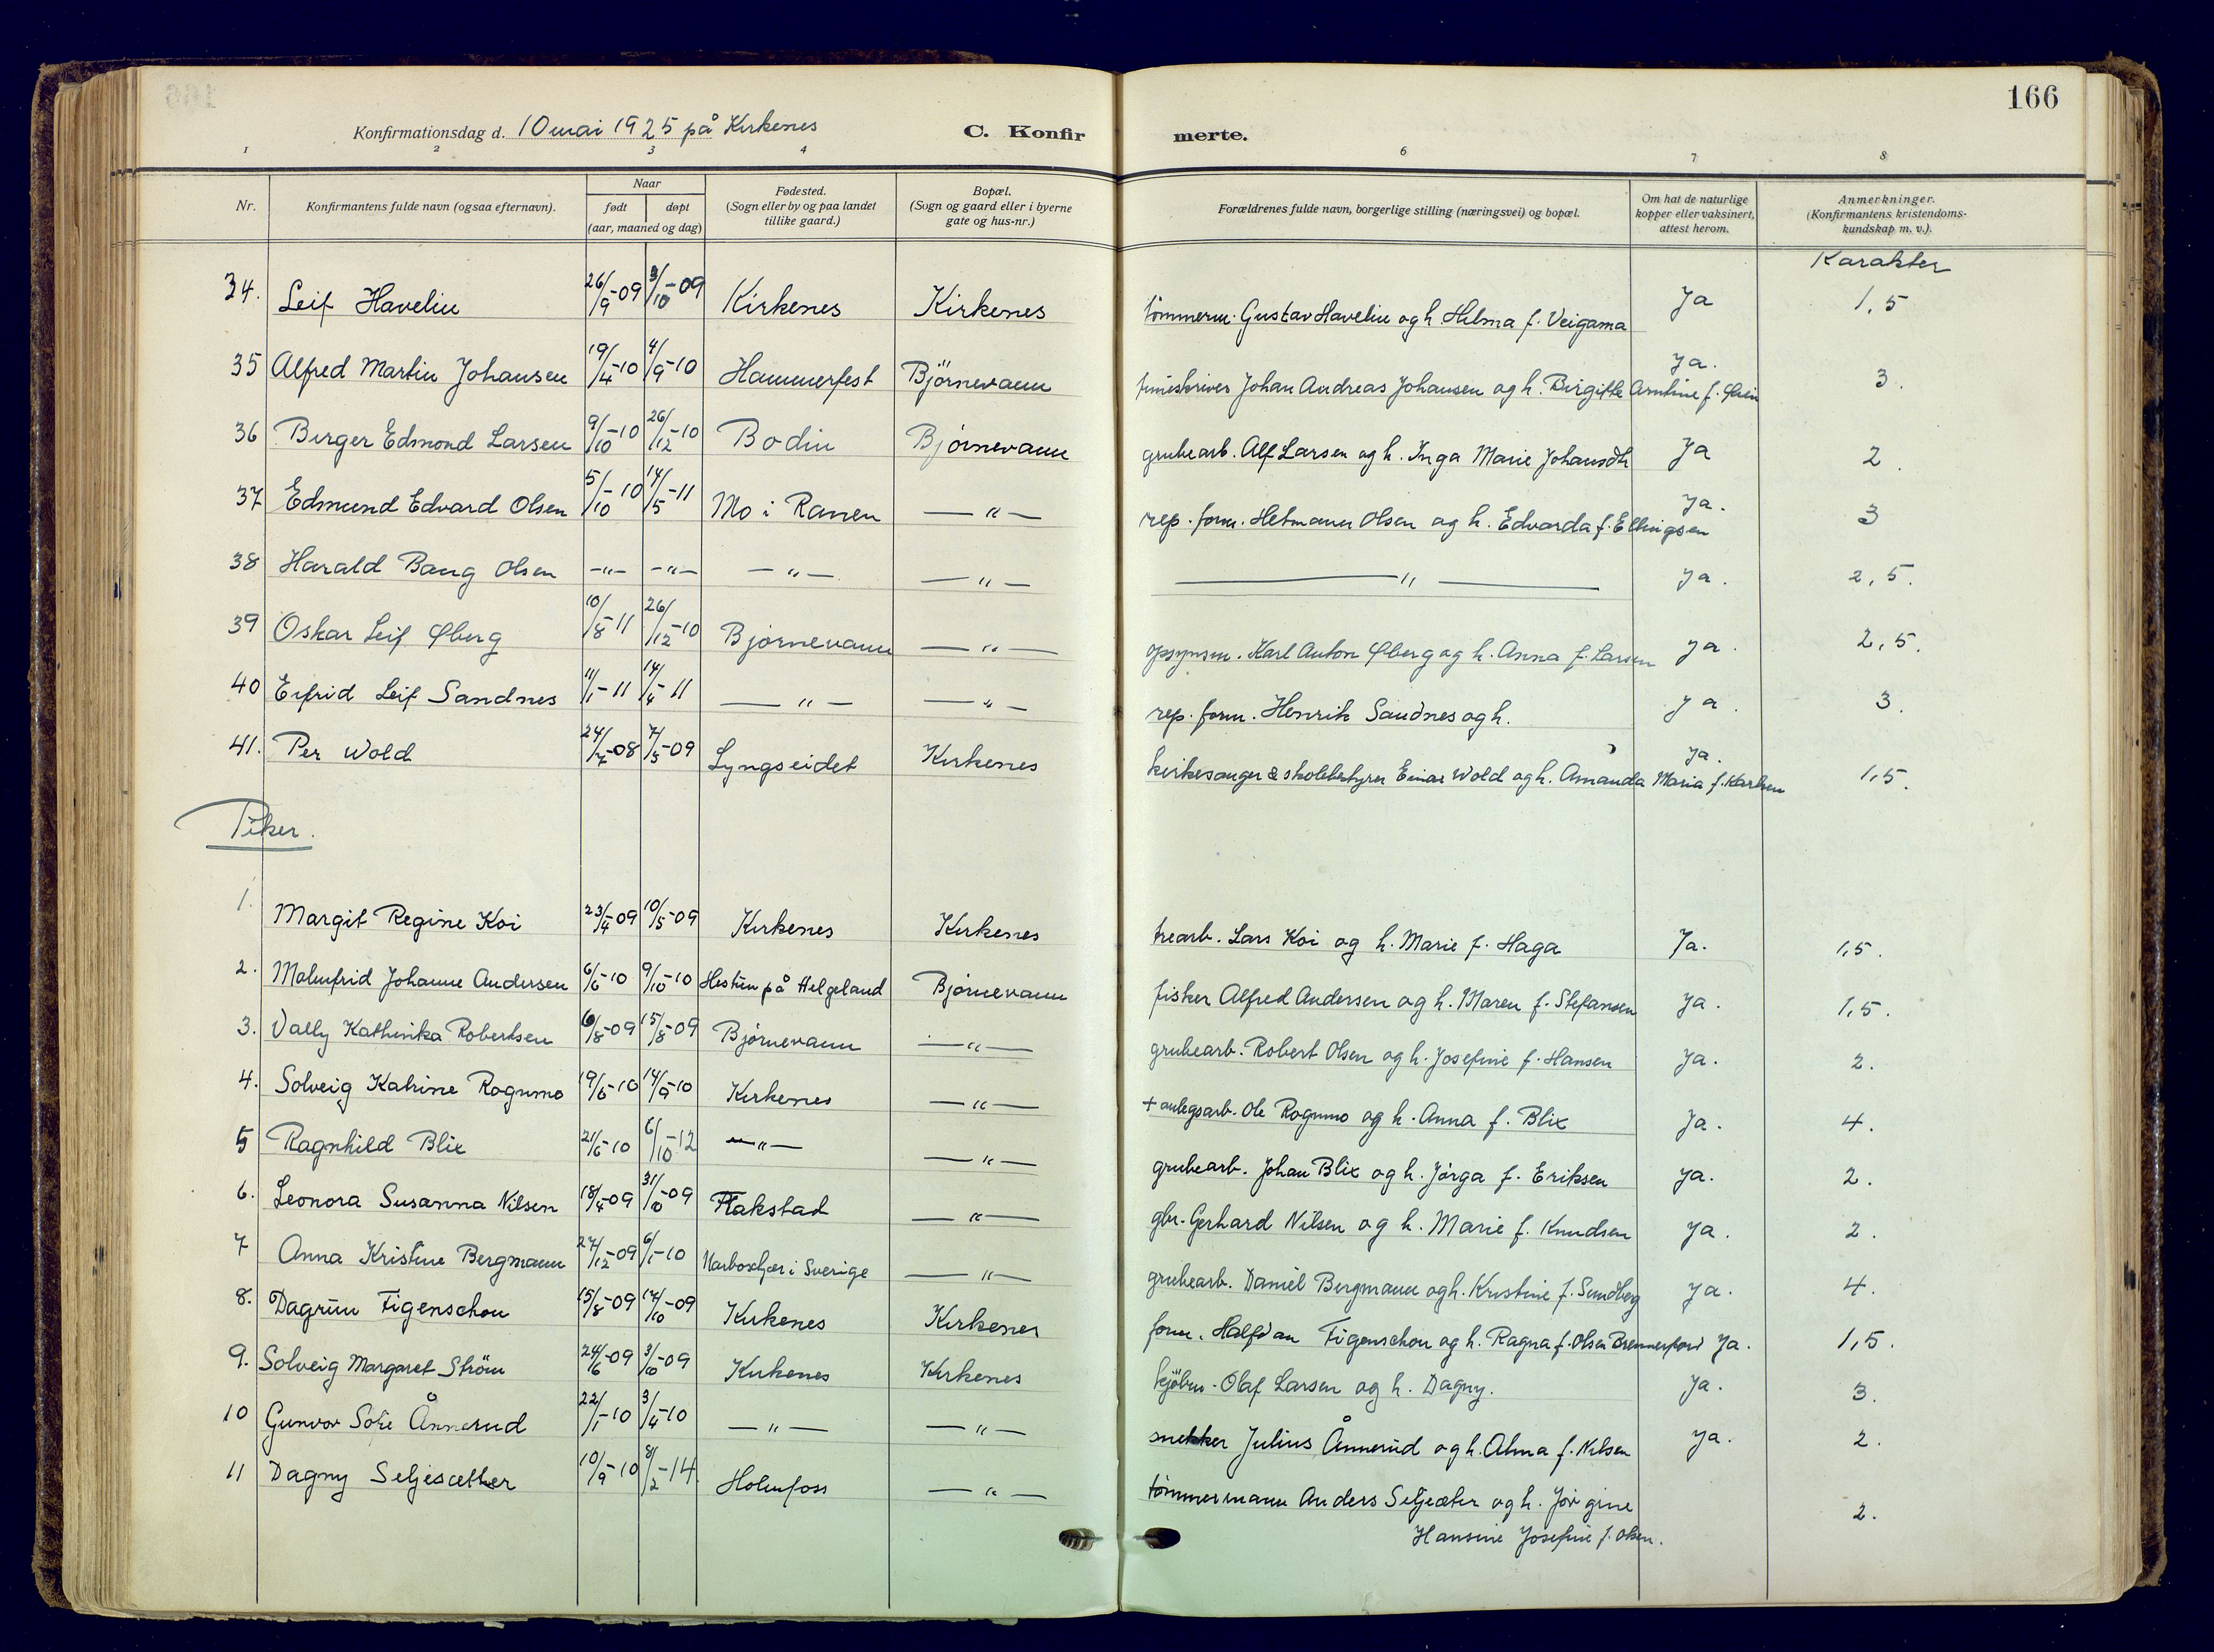 166
Konfirmationsdag d. 10 mai 1925 på Kirkenes C. Konfirmerte.
1 2 3 4 6 7 8
Nr. Konfirmantens fulde navn (ogsaa efternavn). Naar født døpt (aar, maaned og dag) Fødested. (Sogn eller by og paa landet tillike gaard.) Bopæl. (Sogn og gaard eller i byerne gate og hus-nr.) Forældrenes fulde navn, borgerlige stilling (næringsvei) og bopæl. Om hat de naturlige kopper eller vaksinert, attest herom. Anmerkninger. (Konfirmantens kristendoms-kundskap m. v.).
Karakter
34. Leif Havelin 26/9-09 3/10-09 Kirkenes Kirkenes tømmerm. Gustav Havelin og h. Hilma f. Veigama Ja 1,5
35 Alfred Martin Johansen 19/4-10 4/9-10 Hammerfest Björnevann Johan Andreas Johansen og h. Birgitte Arntine f. Ja. 3.
36 Birger Edmond Larsen 9/10-10 26/12-10 Bodin Bjørnevann grubearb. Alf Larsen og h. Inga Marie Johansdtr Ja 2.
37 Edmund Edvard Olsen 5/10-10 14/5-11 Mo i Ranen — " — rep. form. Hetmann Olsen og h. Edvarda f. Ellingsen Ja. 3
38 Harald Bang Olsen -"- -"- — " — — " — — " — Ja. 2,5.
39 Oskar Leif Øberg 10/8-11 26/12-10 Bjørnevann — " — opsynsm. Karl Anton Øberg og h. Anna f. Larsen Ja. 2,5.
40 Eifrid Leif Sandnes 11/1-11 14/4-11 — " — — " — rep. form. Henrik Sandnes og h. Ja. 3.
41. Per Wold 24/7-08 7/3-09 Lyngseidet Kirkenes kirkesanger & skolebestyrer Einar Wold og h. Amanda Maria f. Karlsen Ja. 1,5.
Piker.
1. Margit Regine Koi 23/4-09 10/5-09 Kirkenes Kirkenes trearb. Lars Koi og h. Marie f. Haga Ja. 1,5.
2. Malmfrid Johanne Andersen 6/6-10 9/10-10 Hestun på Helgeland Bjørnevann fisker Alfred Andersen og h. Maren f. Stefansen Ja. 1,5.
3. Vally Kathinka Robertsen 6/8-09 15/8-09 Bjørnevann — " — grubearb. Robert Olsen og h. Josefine f. Hansen Ja. 2.
4. Solveig Katrine Rognmo 19/6-10 14/9-10 Kirkenes — " — + anlegsarb. Ole Rognmo og h. Anna f. Blix Ja. 4.
5 Ragnhild Blix 21/6-10 6/10-12 — " — — " — grubearb. Johan Blix og h. Jørga f. Eriksen Ja. 2.
6. Leonora Susanna Nilsen 18/4-09 31/10-09 Flakstad — " — gbr. Gerhard Nilsen og h. Marie f. Knudsen Ja. 2.
7 Anna Kristine Bergmann 27/12-09 6/1-10 i Sverige — " — grubearb. Daniel Bergmann og h. Kristine f. Sundberg Ja. 4.
8. Dagrun Figenschou 15/8-09 17/10-09 Kirkenes Kirkenes form. Halfdan Figenschou og h. Ragna f. Olsen Ja. 1,5.
9. Solveig Margaret Ström 24/6-09 3/10-09 Kirkenes Kirkenes kjøbm. Olaf Larsen og h. Dagny. Ja. 3.
10 Gunvor Sofie Ånnerud 22/1-10 3/4-10 — " — — " — snekker Julius Ånnerud og h. Alma f. Nilsen Ja. 2.
11 Dagny Seljesæther 10/9-10 8/2-14. Holmfoss — " — tømmermann Anders Seljeæter og h. Jörgine 2.
Hansine Josefine f. Olsen.